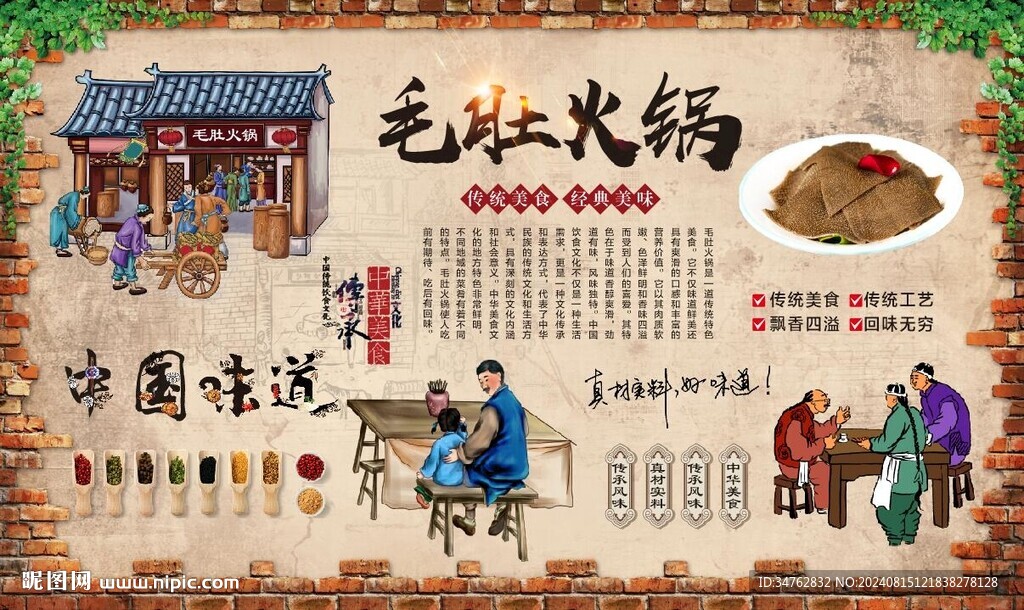 毛肚火锅
毛肚火锅
传统美食 经典美味
毛肚火锅是一道传统特色
美食。它不仅味道鲜美还
具有爽滑的口感和丰富的
营养价值。它以其肉质软
嫩、色泽鲜明和香味四溢
而受到人们的喜爱。其特
色在于味道香醇爽滑，劲
道有味，风味独特。中国
饮食文化不仅是一种生活
需求，更是一种文化传承
和表达方式，代表了中华
民族的传统文化和生活方
式，具有深刻的文化内涵
和社会意义。中华美食文
化的地方特色非常鲜明，
不同地域的菜肴有着不同
的特点。毛肚火锅使人吃
前有期待、吃后有回味。
传统美食 传统工艺
飘香四溢 回味无穷
中国传统饮食文化
传承
中華美食
文化
中国味道
真材实料,好味道!
传承风味
真材实料
传承风味
中华美食
昵图网 www.nipic.com
ID:34762832 NO:20240815121838278128